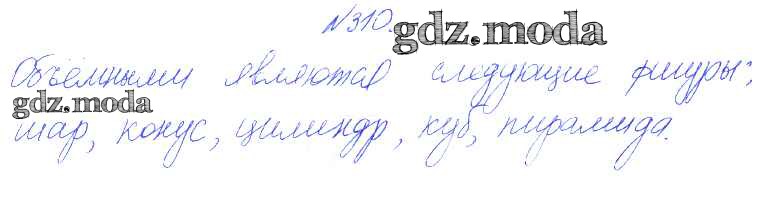 №310.
gdz.moda
Объёмными являются следующие фигуры:
gdz.moda
шар, конус, цилиндр, куб, пирамида.